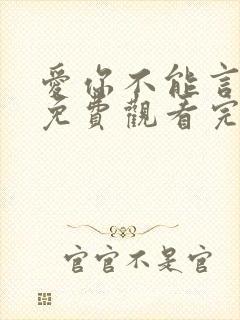 愛你不能言
免費觀看完
官官不是官